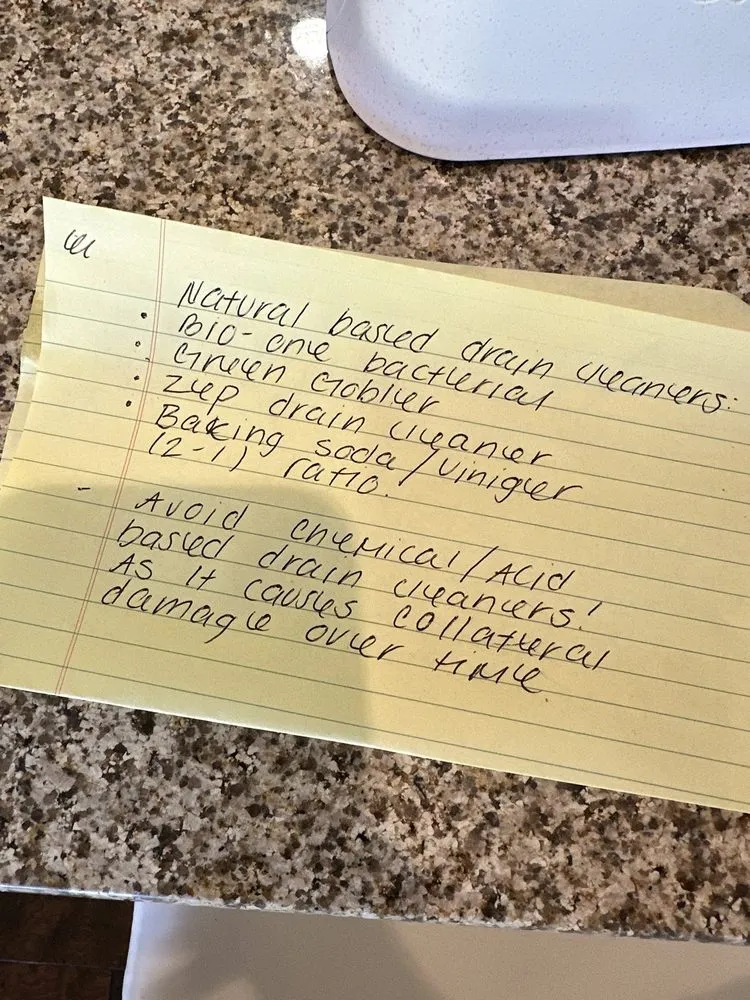 Natural based drain cleaners:
• Bio-one bacterial
• Green Gobler
• Zep drain cleaner
• Baking soda/Viniger
(2-1) ratio.
- Avoid chemical/Acid
based drain cleaners!
As it causes collateral
damage over time.